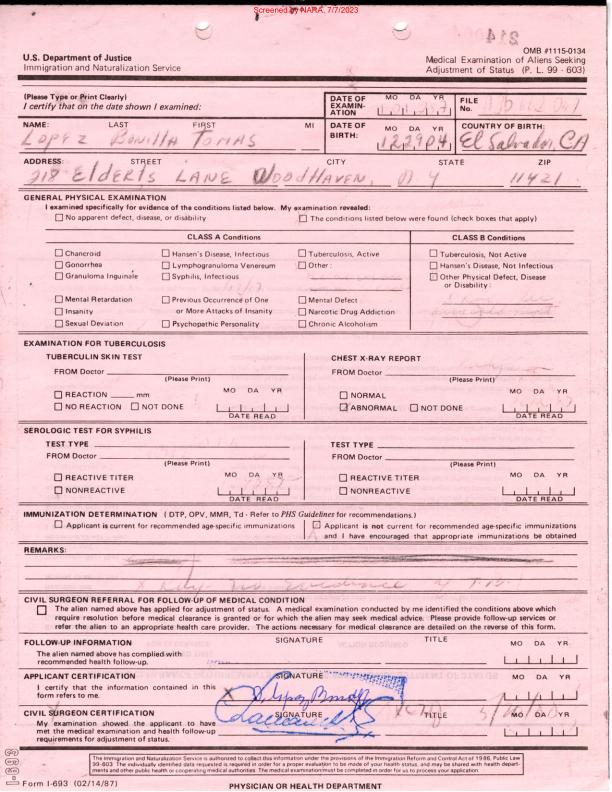 Screened by NARA, 7/7/2023
214
OMB #1115-0134
U.S. Department of Justice
Immigration and Naturalization Service
Medical Examination of Aliens Seeking
Adjustment of Status (P. L. 99 - 603)
(Please Type or Print Clearly)
I certify that on the date shown I examined:
DATE OF EXAMINATION MO DA YR
FILE No.
NAME: LAST FIRST MI
LOPEZ Bonilla TOMAS
DATE OF BIRTH: MO DA YR
122904
COUNTRY OF BIRTH:
El Salvador, CA
ADDRESS: STREET CITY STATE ZIP
218 Elderts LANE WoodHaven, N Y 11421
GENERAL PHYSICAL EXAMINATION
I examined specifically for evidence of the conditions listed below. My examination revealed:
No apparent defect, disease, or disability
The conditions listed below were found (check boxes that apply)
CLASS A Conditions
CLASS B Conditions
Chancroid
Hansen's Disease, Infectious
Tuberculosis, Active
Tuberculosis, Not Active
Gonorrhea
Lymphogranuloma Venereum
Other:
Hansen's Disease, Not Infectious
Granuloma Inguinale
Syphilis, Infectious
Other Physical Defect, Disease
or Disability:
Mental Retardation
Previous Occurrence of One
or More Attacks of Insanity
Mental Defect
Insanity
Narcotic Drug Addiction
Sexual Deviation
Psychopathic Personality
Chronic Alcoholism
EXAMINATION FOR TUBERCULOSIS
TUBERCULIN SKIN TEST
CHEST X-RAY REPORT
FROM Doctor
(Please Print)
FROM Doctor
(Please Print)
REACTION mm
MO DA YR
NORMAL
MO DA YR
NO REACTION NOT DONE
DATE READ
ABNORMAL NOT DONE
DATE READ
SEROLOGIC TEST FOR SYPHILIS
TEST TYPE
TEST TYPE
FROM Doctor
(Please Print)
FROM Doctor
(Please Print)
REACTIVE TITER
MO DA YR
REACTIVE TITER
MO DA YR
NONREACTIVE
DATE READ
NONREACTIVE
DATE READ
IMMUNIZATION DETERMINATION (DTP, OPV, MMR, Td - Refer to PHS Guidelines for recommendations.)
Applicant is current for recommended age-specific immunizations
Applicant is not current for recommended age-specific immunizations
and I have encouraged that appropriate immunizations be obtained
REMARKS:
CIVIL SURGEON REFERRAL FOR FOLLOW-UP OF MEDICAL CONDITION
The alien named above has applied for adjustment of status. A medical examination conducted by me identified the conditions above which
require resolution before medical clearance is granted or for which the alien may seek medical advice. Please provide follow-up services or
refer the alien to an appropriate health care provider. The actions necessary for medical clearance are detailed on the reverse of this form.
FOLLOW-UP INFORMATION SIGNATURE TITLE MO DA YR
The alien named above has complied with
recommended health follow-up.
APPLICANT CERTIFICATION SIGNATURE
I certify that the information contained in this
form refers to me.
CIVIL SURGEON CERTIFICATION SIGNATURE TITLE MO DA YR
My examination showed the applicant to have
met the medical examination and health follow-up
requirements for adjustment of status.
The Immigration and Naturalization Service is authorized to collect this information under the provisions of the Immigration Reform and Control Act of 1986, Public Law
99-603. The individually identified data requested is required in order for a proper evaluation to be made of your health status, and may be shared with health depart-
ments and other public health or cooperating medical authorities. The medical examination must be completed in order for us to process your application.
Form I-693 (02/14/87)
PHYSICIAN OR HEALTH DEPARTMENT